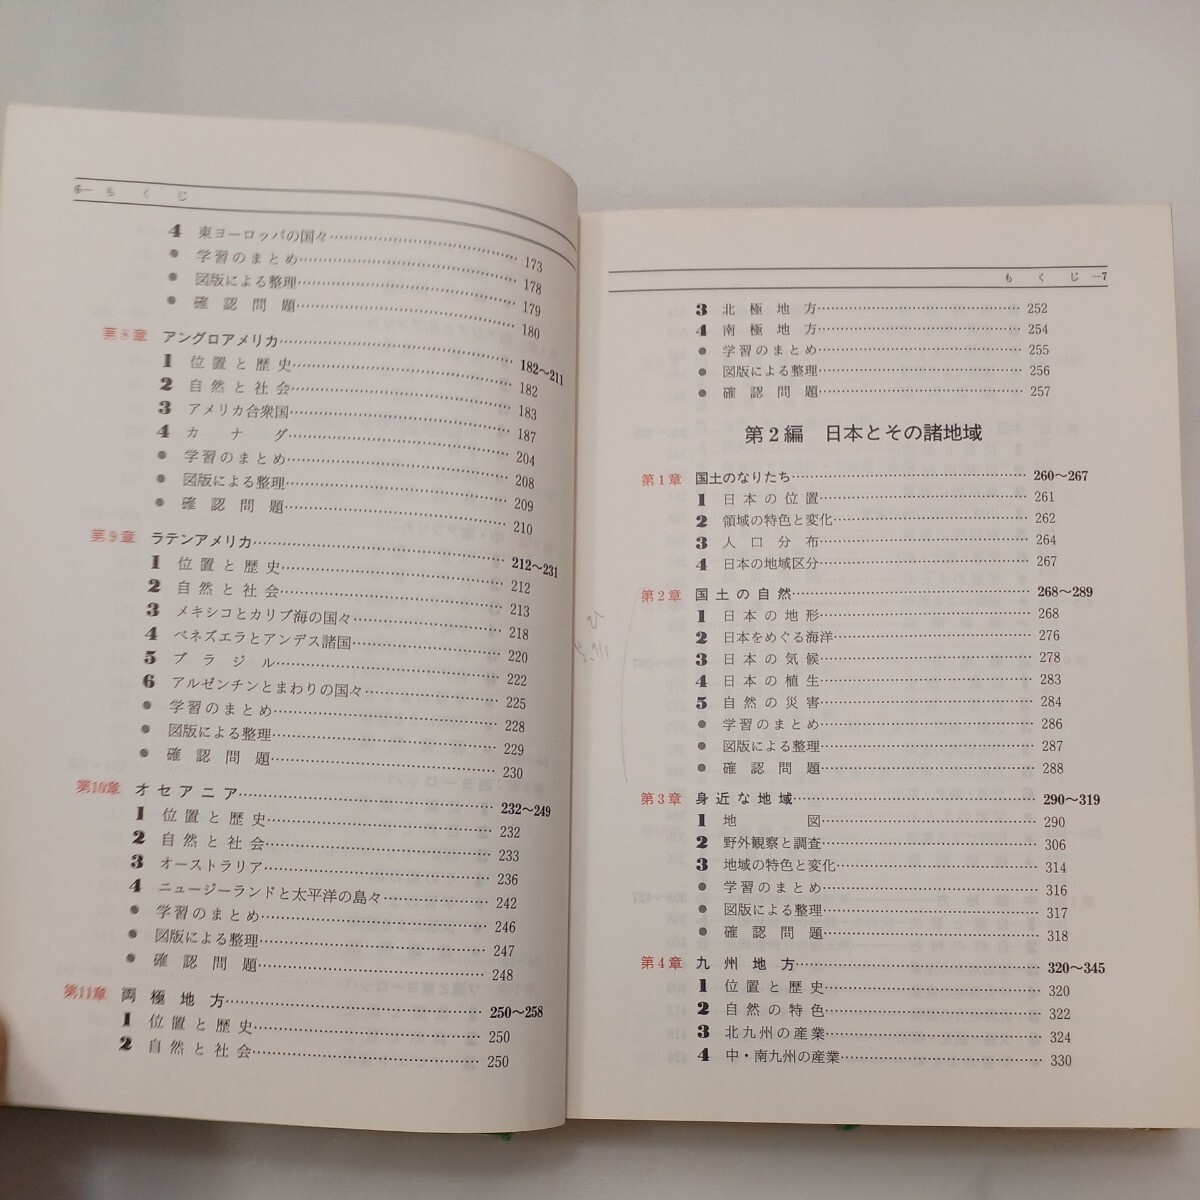 6— もくじ
4 東ヨーロッパの国々 173
● 学習のまとめ 178
● 図版による整理 179
● 確認問題 180
第8章 アングロアメリカ 182〜211
1 位置と歴史 182
2 自然と社会 183
3 アメリカ合衆国 187
4 カナダ 204
● 学習のまとめ 208
● 図版による整理 209
● 確認問題 210
第9章 ラテンアメリカ 212〜231
1 位置と歴史 212
2 自然と社会 213
3 メキシコとカリブ海の国々 218
4 ベネズエラとアンデス諸国 220
5 ブラジル 222
6 アルゼンチンとまわりの国々 225
● 学習のまとめ 228
● 図版による整理 229
● 確認問題 230
第10章 オセアニア 232〜249
1 位置と歴史 232
2 自然と社会 233
3 オーストラリア 236
4 ニュージーランドと太平洋の島々 242
● 学習のまとめ 246
● 図版による整理 247
● 確認問題 248
第11章 両極地方 250〜258
1 位置と歴史 250
2 自然と社会 250
もくじ —7
3 北極地方 252
4 南極地方 254
● 学習のまとめ 255
● 図版による整理 256
● 確認問題 257
第2編 日本とその諸地域
第1章 国土のなりたち 260〜267
1 日本の位置 261
2 領域の特色と変化 262
3 人口分布 264
4 日本の地域区分 267
第2章 国土の自然 268〜289
1 日本の地形 268
2 日本をめぐる海洋 276
3 日本の気候 278
4 日本の植生 283
5 自然の災害 284
● 学習のまとめ 286
● 図版による整理 287
● 確認問題 288
第3章 身近な地域 290〜319
1 地図 290
2 野外観察と調査 306
3 地域の特色と変化 314
● 学習のまとめ 316
● 図版による整理 317
● 確認問題 318
第4章 九州地方 320〜345
1 位置と歴史 320
2 自然の特色 322
3 北九州の産業 324
4 中・南九州の産業 330